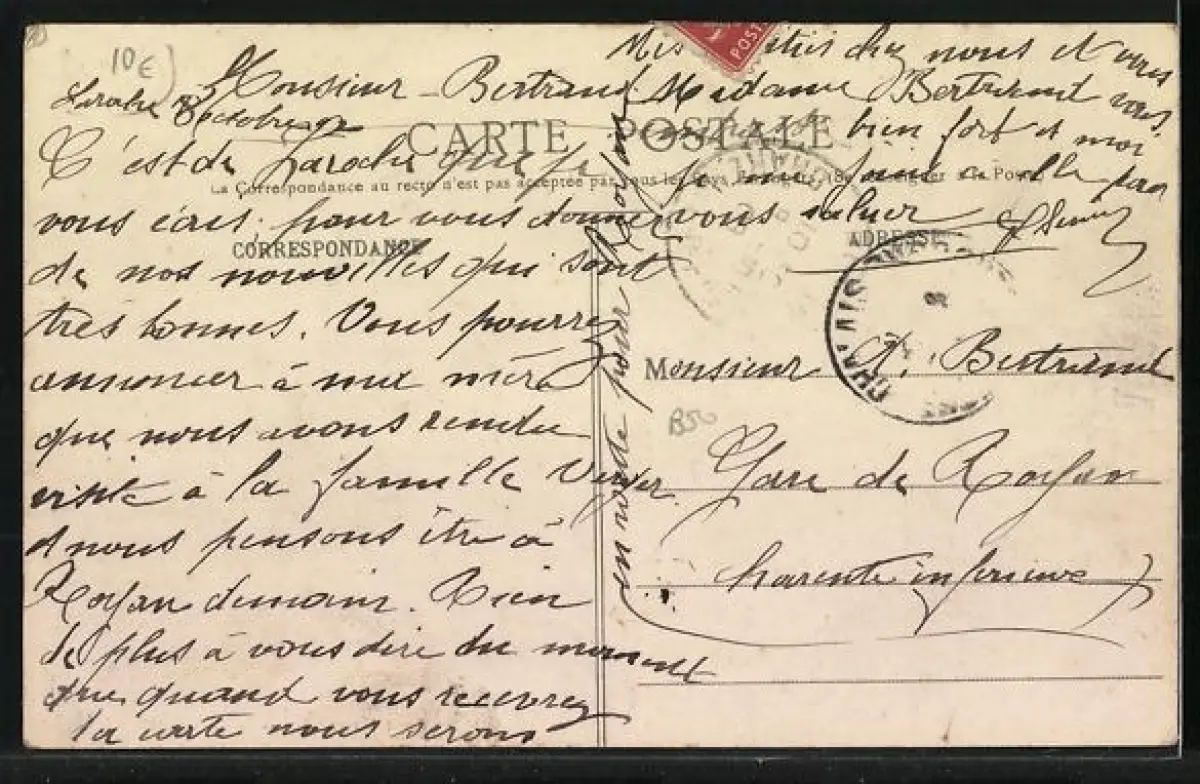 10€
Laroche 8 Octobre
Monsieur Bertrand
CARTE POSTALE
C'est de Laroche que je
La Correspondance au recto n'est pas acceptée par tous les Pays
vous écris pour vous donner
CORRESPONDANCE
de nos nouvelles qui sont
très bonnes. Vous pourrez
annoncer à ma mère
que nous avons rendu
visite à la famille
et nous pensons être à
Royan demain. Rien
de plus à vous dire du moment
que quand vous recevrez
la carte nous serons
en route pour Royan
Mes chez nous et vous
Madame Bertrand vous
bien fort et moi
je me joins à elle pour
vous saluer
ADRESSE
Monsieur A. Bertrand
B50
Gare de Royan
Charente inférieure
POST
CHALAIS